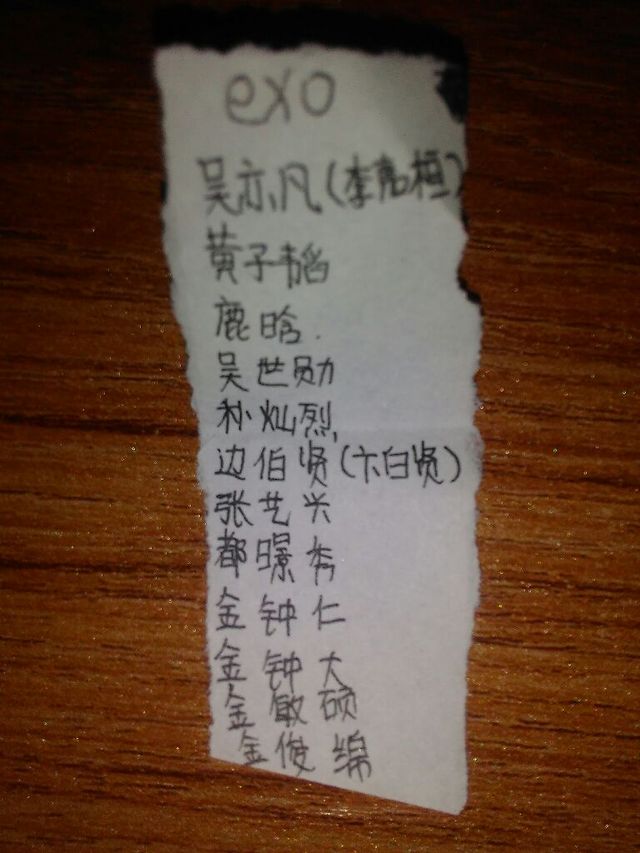 exo
吴亦凡(李嘉桓)
黄子韬
鹿晗.
吴世勋
朴灿烈
边伯贤(卞白贤)
张艺兴
都暻秀
金钟仁
金钟大
金敏硕
金俊绵